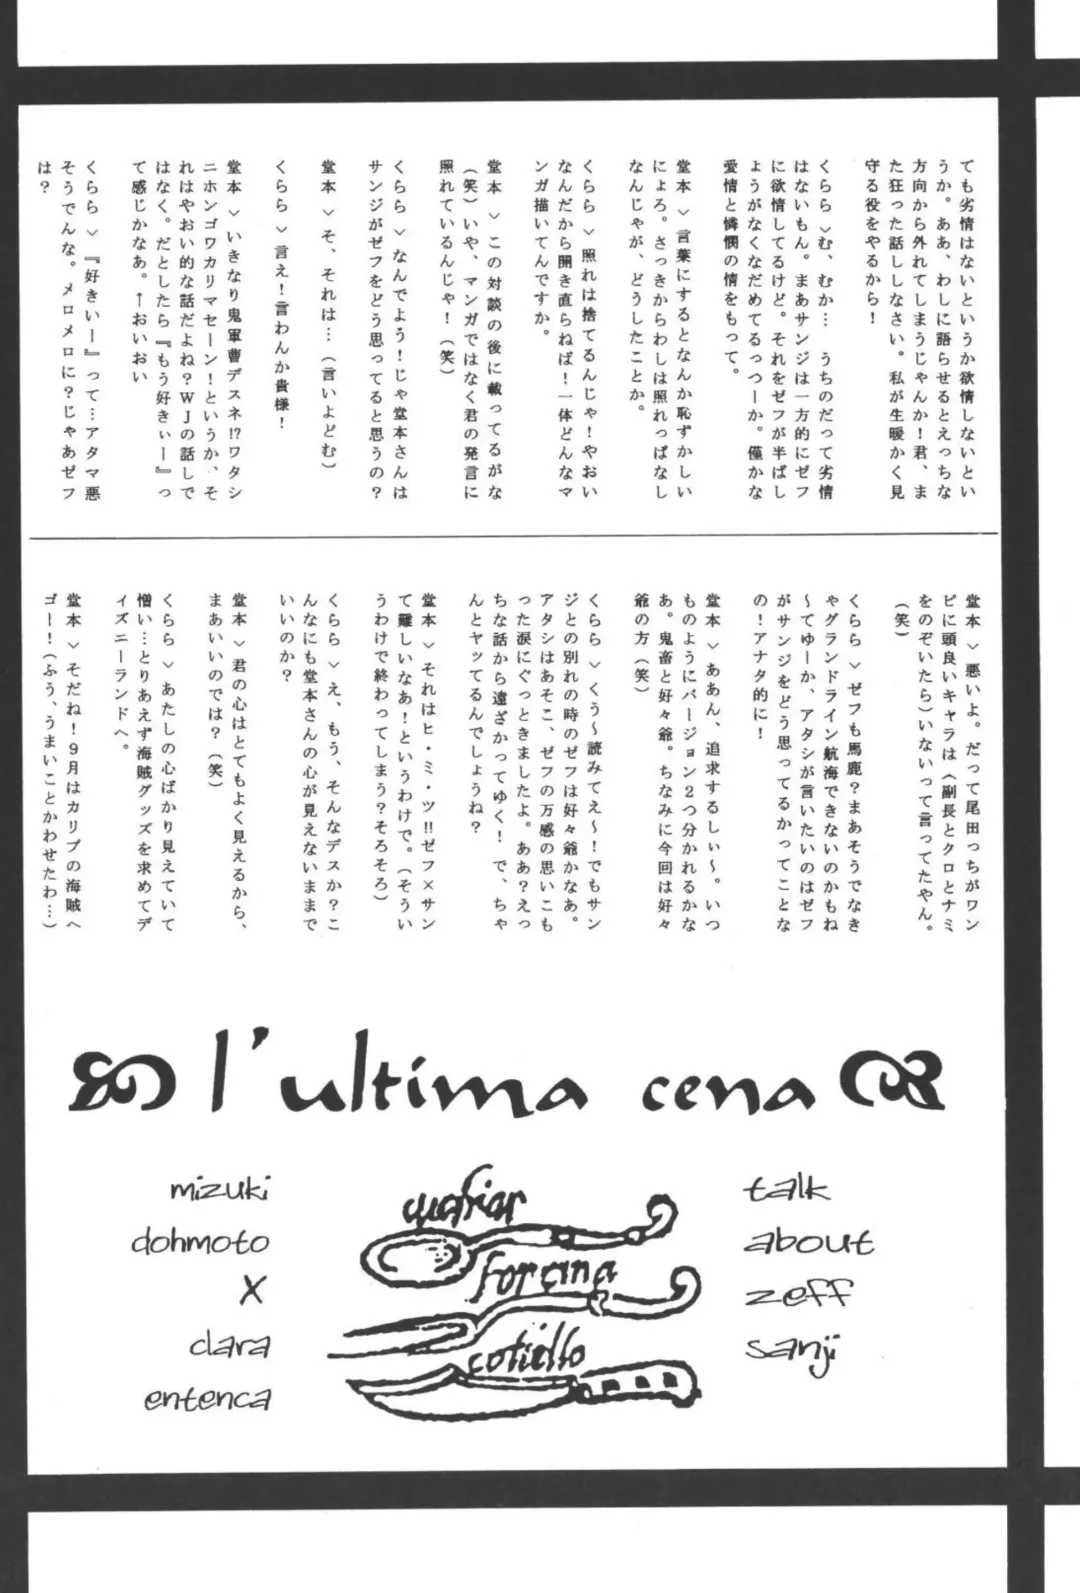 ても劣情はないというか欲情しないとい
うか。ああ、わしに語らせるとえっちな
方向から外れてしまうじゃんか!君、ま
た狂った話ししなさい。私が生暖かく見
守る役をやるから!
くらら>む、むか… うちのだって劣情
はないもん。まあサンジは一方的にゼフ
に欲情してるけど。それをゼフが半ばし
ょうがなくなだめてるっつーか。僅かな
愛情と憐憫の情をもって。
堂本>言葉にするとなんか恥ずかしい
にょろ。さっきからわしは照れっぱなし
なんじゃが、どうしたことか。
くらら>照れは捨てるんじゃ!やおい
なんだから開き直らねば!一体どんなマ
ンガ描いてんですか。
堂本>この対談の後に載ってるがな
(笑)いや、マンガではなく君の発言に
照れているんじゃ!(笑)
くらら>なんでよう!じゃ堂本さんは
サンジがゼフをどう思ってると思うの?
堂本>そ、それは…(言いよどむ)
くらら>言え!言わんか貴様!
堂本>いきなり鬼軍曹デスネ!?ワタシ
ニホンゴワカリマセーン!というか、そ
れはやおい的な話だよね?WJの話しで
はなく。だとしたら『もう好きぃー』っ
て感じかなあ。↑おいおい
くらら>『好きいー』って…アタマ悪
そうでんな。メロメロに?じゃあゼフ
は?
堂本>悪いよ。だって尾田っちがワン
ピに頭良いキャラは(副長とクロとナミ
をのぞいたら)いないって言ってたやん。
(笑)
くらら>ゼフも馬鹿?まあそうでなき
ゃグランドライン航海できないのかもね
~てゆーか、アタシが言いたいのはゼフ
がサンジをどう思ってるかってことな
の!アナタ的に!
堂本>ああん、追求するしぃ~。いつ
ものようにバージョン2つ分かれるかな
あ。鬼畜と好々爺。ちなみに今回は好々
爺の方(笑)
くらら>くう~読みてえ~!でもサン
ジとの別れの時のゼフは好々爺かなあ。
アタシはあそこ、ゼフの万感の思いこも
った涙にぐっときましたよ。ああ?えっ
ちな話から遠ざかってゆく! で、ちゃ
んとヤッてるんでしょうね?
堂本>それはヒ・ミ・ツ!!ゼフ×サン
て難しいなあ!というわけで。(そうい
うわけで終わってしまう?そろそろ)
くらら>え、もう、そんなデスか?こ
んなにも堂本さんの心が見えないままで
いいのか?
堂本>君の心はとてもよく見えるから、
まあいいのでは?(笑)
くらら>あたしの心ばかり見えていて
憎い…とりあえず海賊グッズを求めてデ
ィズニーランドへ。
堂本>そだね!9月はカリブの海賊へ
ゴー!(ふう、うまいことかわせたわ…)
l'ultima cena
mizuki
dohmoto
X
clara
entenca
forcina
coltello
talk
about
zeff
sanji